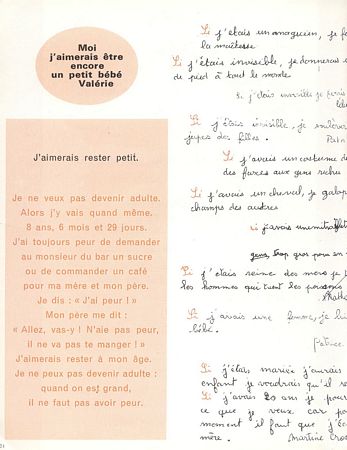 Moi
j'aimerais être
encore
un petit bébé
Valérie
J'aimerais rester petit.
Je ne veux pas devenir adulte.
Alors j'y vais quand même.
8 ans, 6 mois et 29 jours.
J'ai toujours peur de demander
au monsieur du bar un sucre
ou de commander un café
pour ma mère et mon père.
Je dis : « J'ai peur ! »
Mon père me dit :
« Allez, vas-y ! N'aie pas peur,
il ne va pas te manger ! »
J'aimerais rester à mon âge.
Je ne peux pas devenir adulte :
quand on est grand,
il ne faut pas avoir peur.
Si j'étais un magicien, je fe
la maîtesse
Si j'étais invisible, je donnerais
de pied à tout le monde
Si j'étais invisible je
Si j'étais invisible, je
jupes des filles.
Si j'avais un costume de
des farces aux gens
Si j'avais un cheval, je galop
champs des autres
si j'avais
gens trop gros pour
Si j'étais reine des mers je
les hommes qui tuent les poissons
Si j'avais une femme, je lui
bébé.
Patrice.
Si j'étais mariée j'aurais
enfant je voudrais qu'il re
Si j'avais 20 ans je pour
ce que je veux, car po
moment il faut que j'
mère. Martine